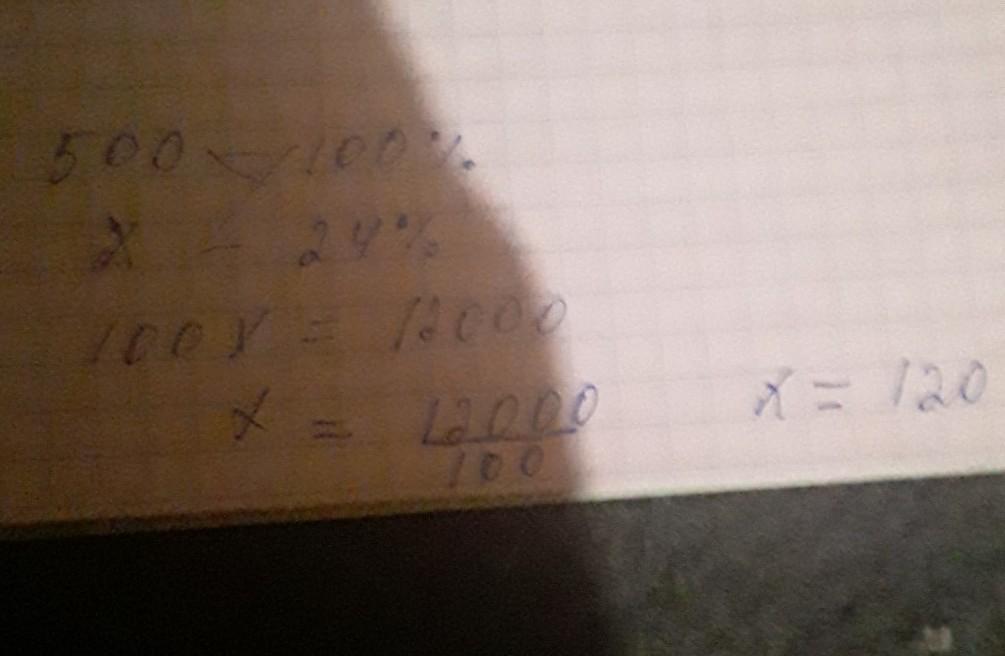 500 - 100%
x - 24%
100x = 12000
x = 12000/100 x = 120